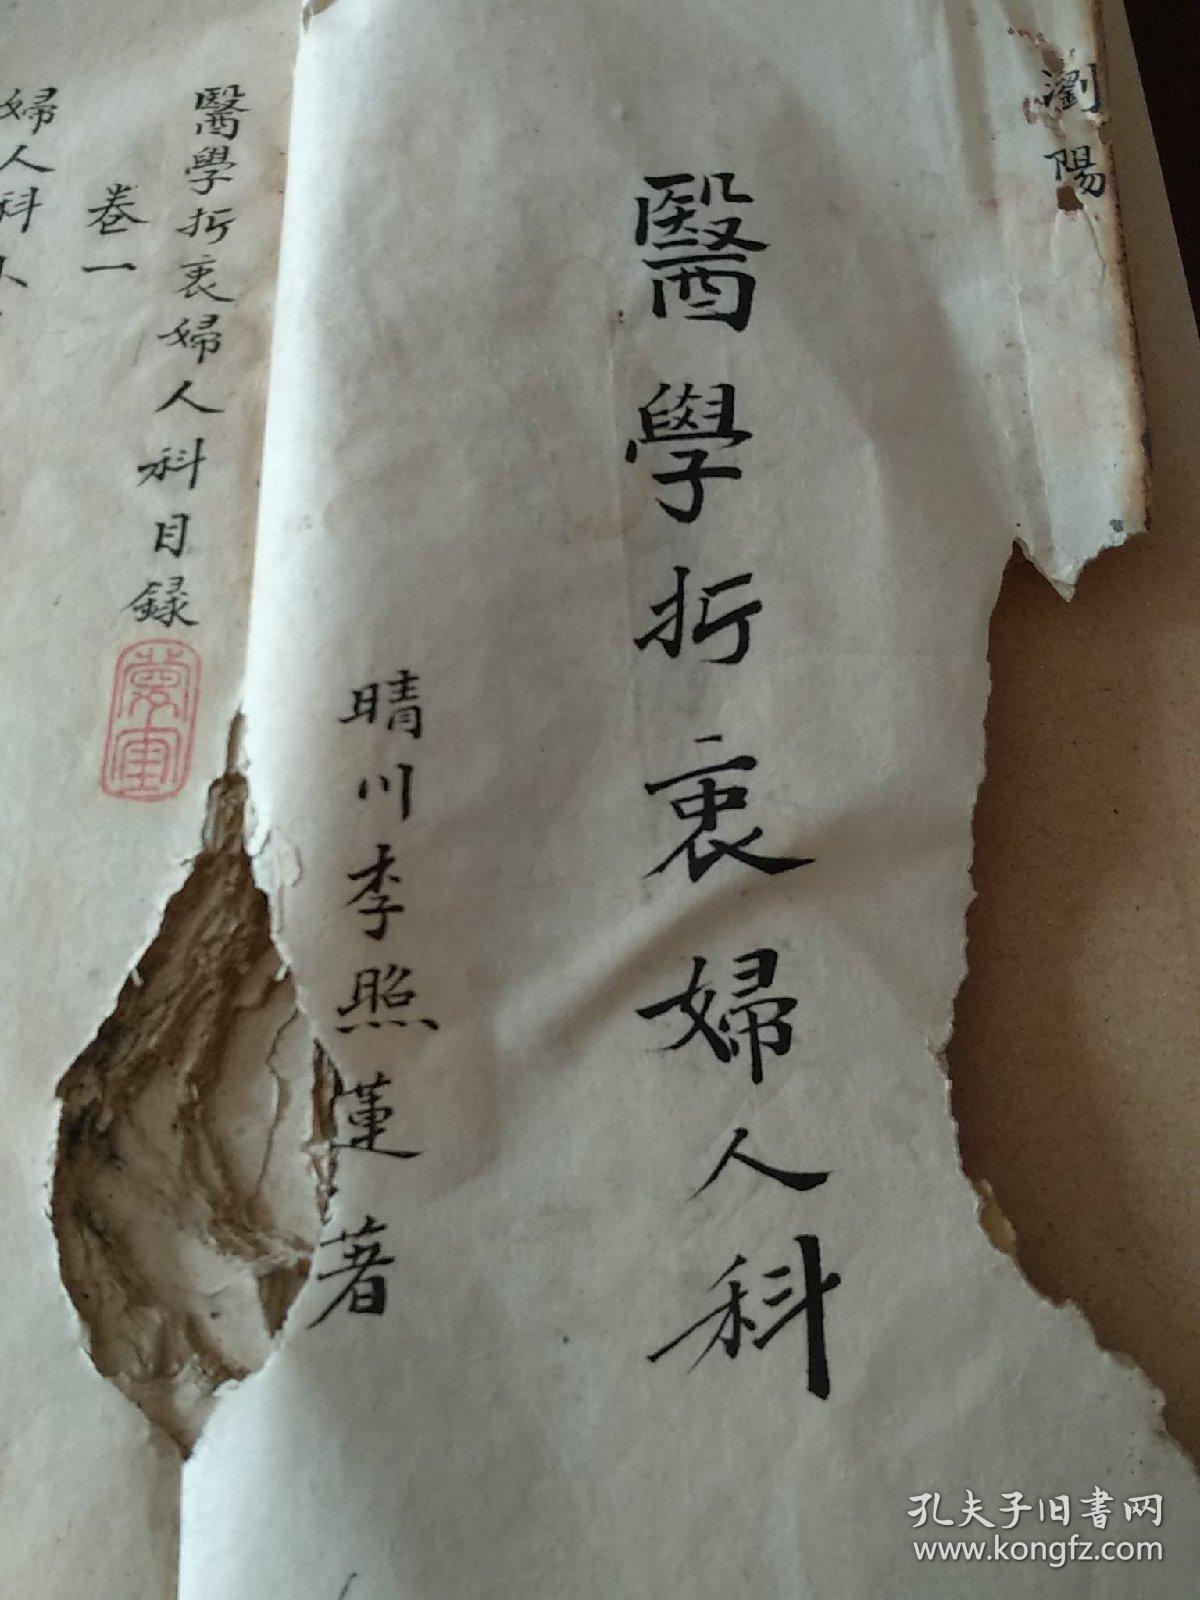 瀏陽
醫學折衷婦人科
晴川李照蓮著
醫學折衷婦人科目録
卷一
婦人科
孔夫子旧書网
www.kongfz.com